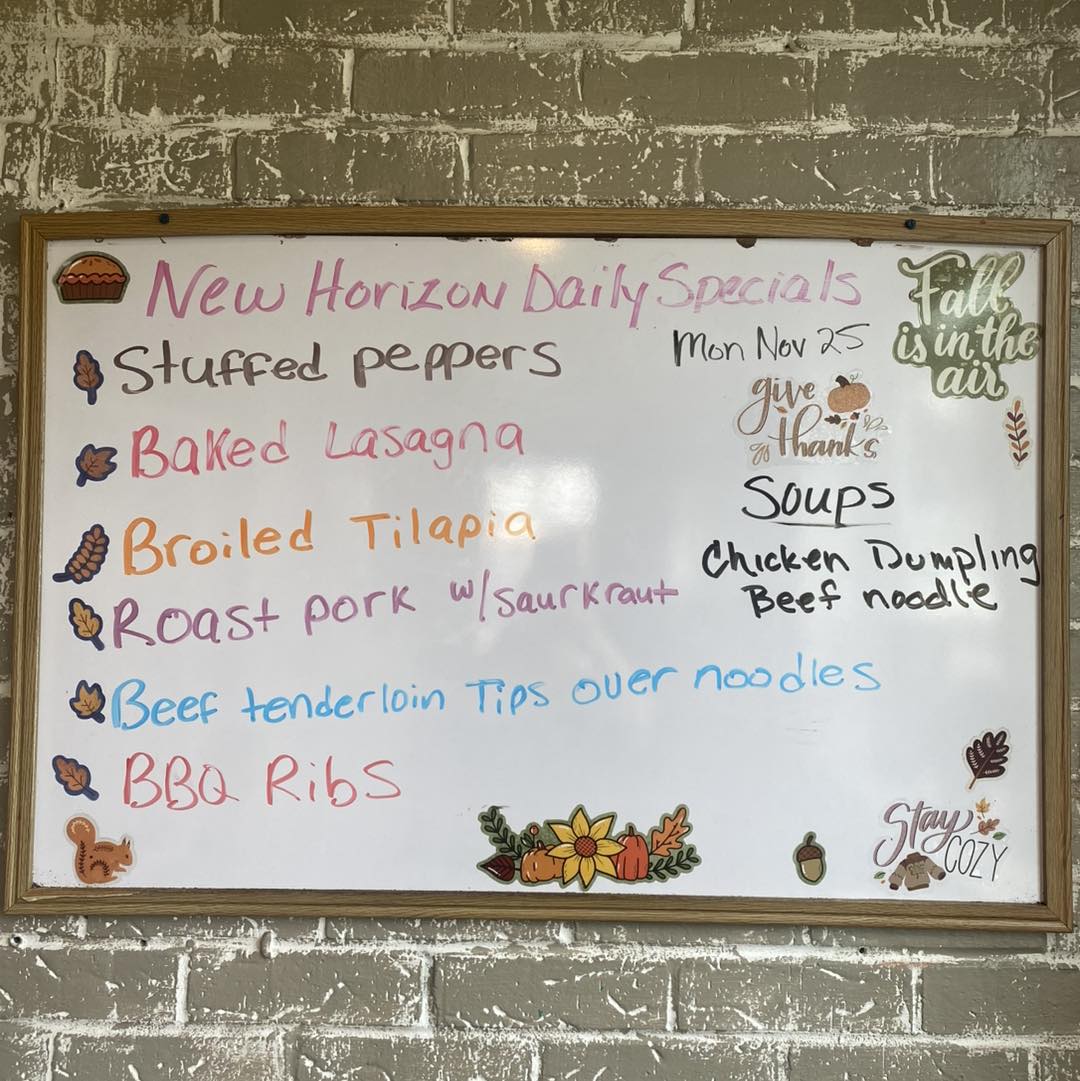 New Horizon Daily Specials
Fall
is in the
air
Stuffed peppers
Mon Nov 25
give
thanks
Baked Lasagna
Broiled Tilapia
Roast pork w/saurkraut
Beef tenderloin Tips over noodles
BBQ Ribs
Soups
Chicken Dumpling
Beef noodle
Stay
COZY